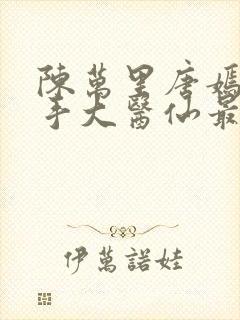 陳萬里唐嫣
手大醫仙最
伊萬諾娃